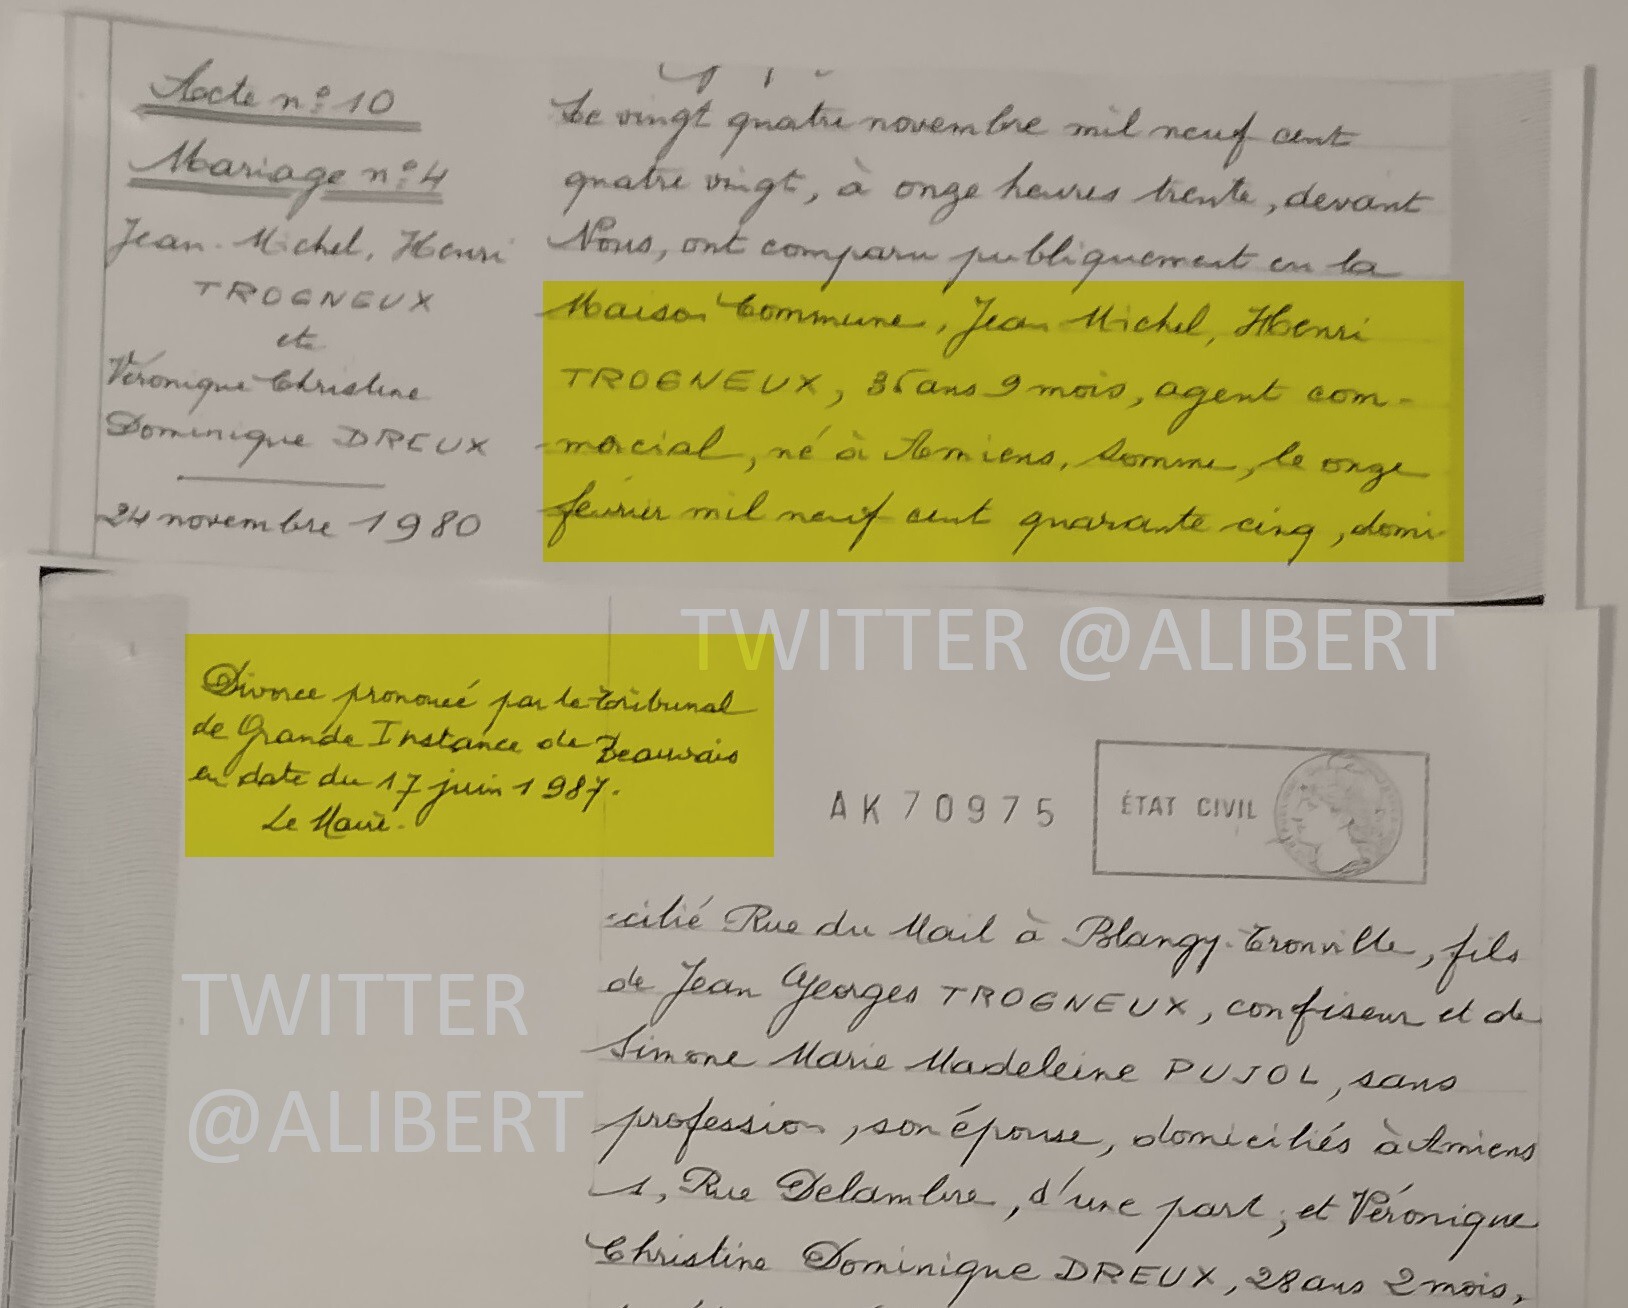 Acte n° 10
Mariage n° 4
Jean-Michel, Henri
TROGNEUX
et
Véronique Christine
Dominique DREUX
24 novembre 1980
Le vingt quatre novembre mil neuf cent
quatre vingt, à onze heures trente, devant
Nous, ont comparu publiquement en la
Maison Commune, Jean-Michel, Henri
TROGNEUX, 35 ans 9 mois, agent com-
-mercial, né à Amiens, Somme, le onze
février mil neuf cent quarante cinq, domi-
TWITTER @ALIBERT
Divorce prononcé par le Tribunal
de Grande Instance de Beauvais
en date du 17 juin 1987.
Le Maire.
AK70975
ÉTAT CIVIL
-cilié Rue du Mail à Blangy-Tronville, fils
de Jean Georges TROGNEUX, confiseur et de
Simone Marie Madeleine PUJOL, sans
profession, son épouse, domiciliés à Amiens
1, Rue Delambre, d'une part; et Véronique
Christine Dominique DREUX, 28 ans 2 mois,
TWITTER
@ALIBERT